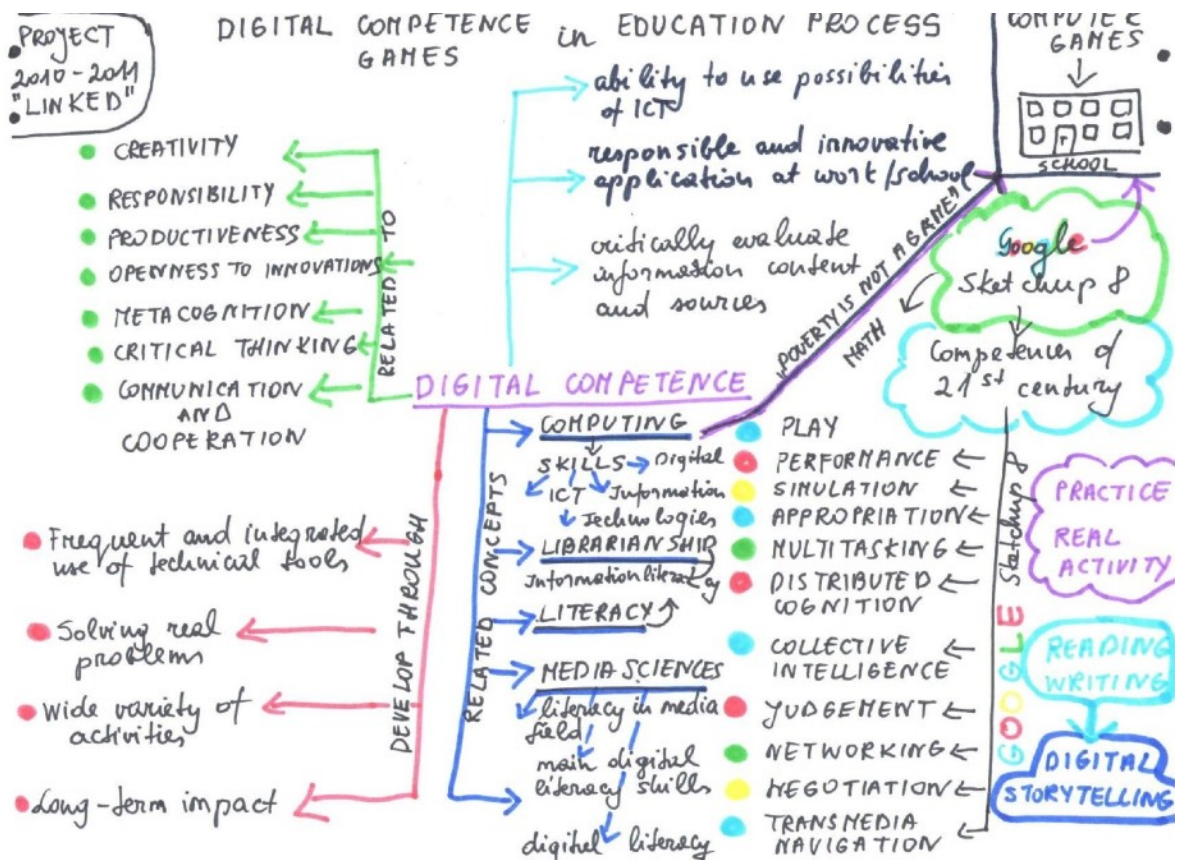 PROYECT
2010-2011
"LINKED"
DIGITAL COMPETENCE in EDUCATION PROCESS
GAMES
COMPUTER
GAMES
SCHOOL
ability to use possibilities
of ICT
responsible and innovative
application at work/school
critically evaluate
information content
and sources
CREATIVITY
RESPONSIBILITY
PRODUCTIVENESS
OPENNESS TO INNOVATIONS
METACOGNITION
CRITICAL THINKING
COMMUNICATION
AND
COOPERATION
RELATED TO
"POVERTY IS NOT A GAME"
MATH
Google
Sketchup 8
Competences of
21st century
DIGITAL COMPETENCE
DEVELOP THROUGH
Frequent and integrated
use of technical tools
Solving real
problems
Wide variety of
activities
Long-term impact
RELATED CONCEPTS
COMPUTING
SKILLS
Digital
ICT
Information
Technologies
LIBRARIANSHIP
Information literacy
LITERACY
MEDIA SCIENCES
literacy in media
field
main digital
literacy skills
digital literacy
PLAY
PERFORMANCE
SIMULATION
APPROPRIATION
MULTITASKING
DISTRIBUTED
COGNITION
COLLECTIVE
INTELLIGENCE
JUDGEMENT
NETWORKING
NEGOTIATION
TRANSMEDIA
NAVIGATION
GOOGLE Sketchup 8
PRACTICE
REAL
ACTIVITY
READING
WRITING
DIGITAL
STORYTELLING